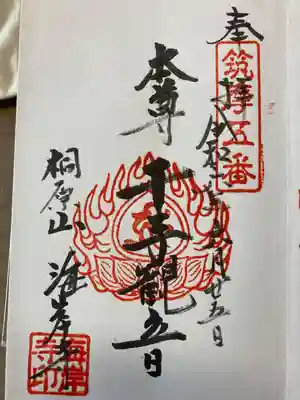 奉拝
筑摩五番
廿五日
本尊
千手観音
桐原山 海岸寺
海岸
寺印